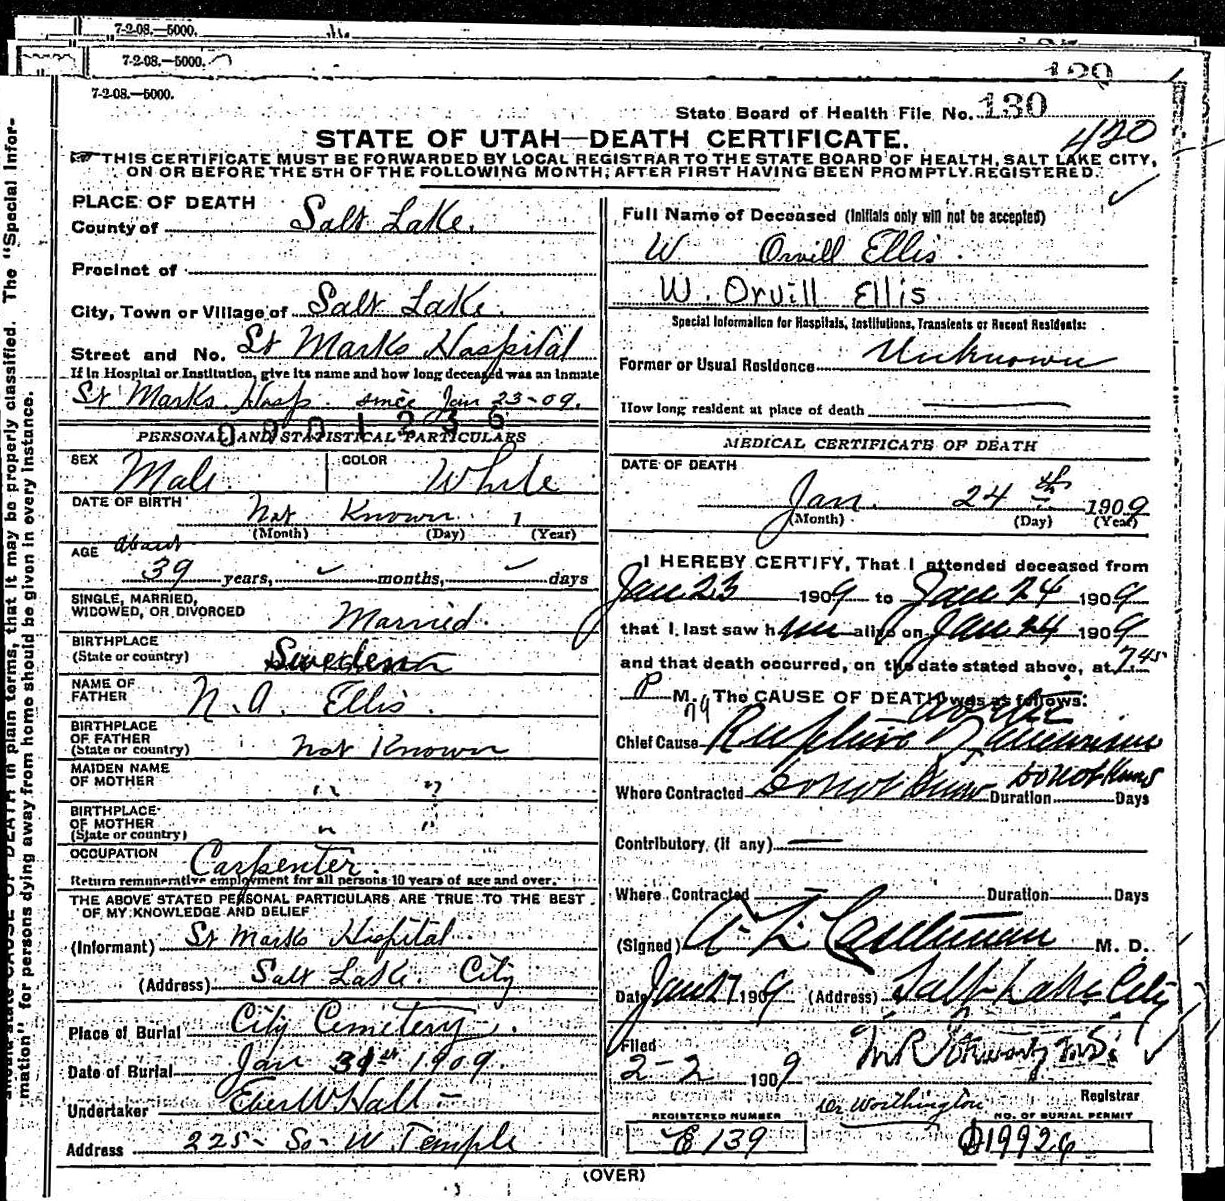 7-2-08.—5000.
7-2-08.—5000.
129
7-2-08.—5000.
State Board of Health File No. 130
420
STATE OF UTAH—DEATH CERTIFICATE.
THIS CERTIFICATE MUST BE FORWARDED BY LOCAL REGISTRAR TO THE STATE BOARD OF HEALTH, SALT LAKE CITY,
ON OR BEFORE THE 5TH OF THE FOLLOWING MONTH, AFTER FIRST HAVING BEEN PROMPTLY REGISTERED.
PLACE OF DEATH
County of Salt Lake.
Precinct of
City, Town or Village of Salt Lake.
Street and No. St Marks Hospital
If in Hospital or Institution, give its name and how long deceased was an inmate
St Marks Hosp. since Jan 23-09.
0001236
PERSONAL AND STATISTICAL PARTICULARS
SEX Male. COLOR White
DATE OF BIRTH Not Known 1
(Month) (Day) (Year)
AGE About
39 years, months, days
SINGLE, MARRIED,
WIDOWED, OR DIVORCED Married.
BIRTHPLACE
(State or country) Sweden
NAME OF
FATHER N. A. Ellis.
BIRTHPLACE
OF FATHER
(State or country) Not Known
MAIDEN NAME
OF MOTHER " "
BIRTHPLACE
OF MOTHER
(State or country) " "
OCCUPATION Carpenter.
Return remunerative employment for all persons 10 years of age and over.
THE ABOVE STATED PERSONAL PARTICULARS ARE TRUE TO THE BEST
OF MY KNOWLEDGE AND BELIEF
(Informant) St Marks Hospital.
(Address) Salt Lake City
Place of Burial City Cemetery.
Date of Burial Jan 31st 1909.
Undertaker Eber W Hall
Address 225- So- W. Temple
Full Name of Deceased (Initials only will not be accepted)
W Orvill Ellis.
W. Orvill Ellis
Special Information for Hospitals, Institutions, Transients or Recent Residents:
Former or Usual Residence Unknown
How long resident at place of death
MEDICAL CERTIFICATE OF DEATH
DATE OF DEATH
Jan. 24th 1909
(Month) (Day) (Year)
I HEREBY CERTIFY, That I attended deceased from
Jan 23 1909 to Jan 24 1909
that I last saw him alive on Jan 24 1909
and that death occurred, on the date stated above, at 7.45
P M. The CAUSE OF DEATH was as follows:
Aortic
Chief Cause Rupture of Aneurism
Where Contracted Do not know Duration Do not know Days
Contributory (if any)
Where Contracted Duration Days
(Signed) M. D.
Date Jan 27 1909 (Address) Salt Lake City
Filed
2-2 1909
Dr Worthington Registrar
REGISTERED NUMBER NO. OF BURIAL PERMIT
139 19926
(OVER)
should state CAUSE OF DEATH in plain terms, that it may be properly classified. The "Special Infor-
mation" for persons dying away from home should be given in every instance.